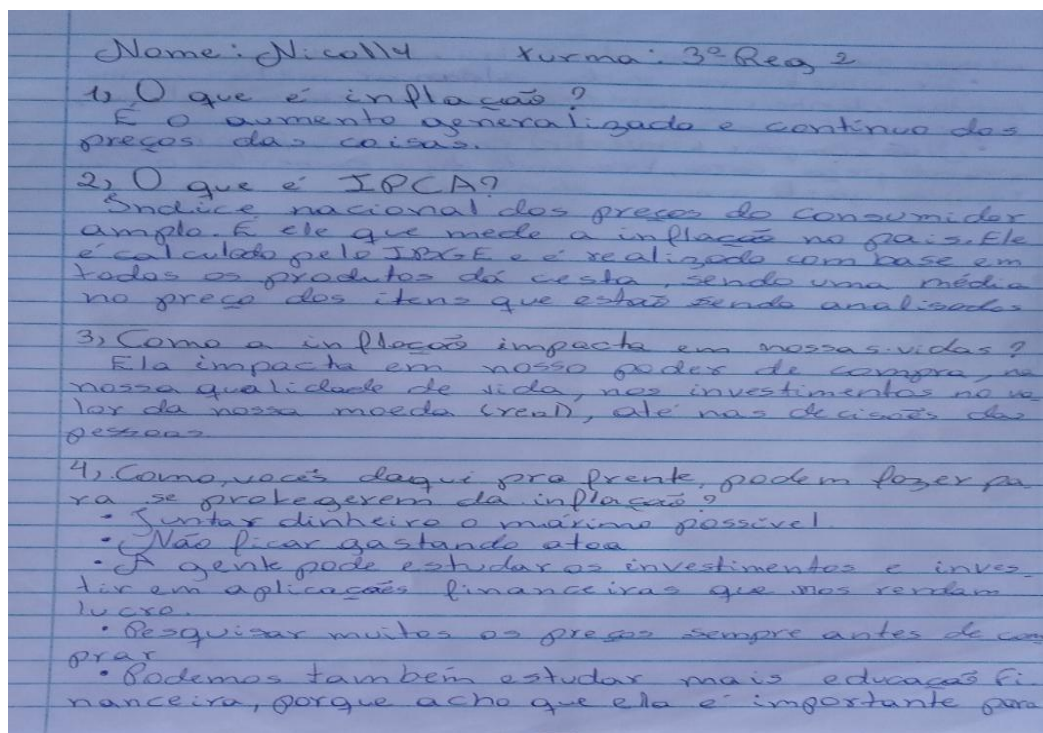 Nome: Nicolly turma: 3º Reg 2
1) O que é inflação?
É o aumento generalizado e contínuo dos
preços das coisas.
2) O que é IPCA?
Índice nacional dos preços do consumidor
amplo. É ele que mede a inflação no pais. Ele
é calculado pelo IBGE e é realizado com base em
todos os produtos da cesta, sendo uma média
no preço dos itens que estrão sendo analisados
3) Como a inflação impacta em nossas vidas?
Ela impacta em nosso poder de compra, na
nossa qualidade de vida, nos investimentos no va
lor da nossa moeda (real), até nas decisões das
pessoas
4) Como, vocês daqui pra frente, podem fazer pa
ra se protegerem da inflação?
• Juntar dinheiro o máximo possível
• Não ficar gastando atoa
• A gente pode estudar os investimentos e inves-
tir em aplicações financeiras que nos rendam
lucro.
• Pesquisar muitos os preços sempre antes de com
prar
• Podemos também estudar mais educação fi
nanceira, porque acho que ela é importante para